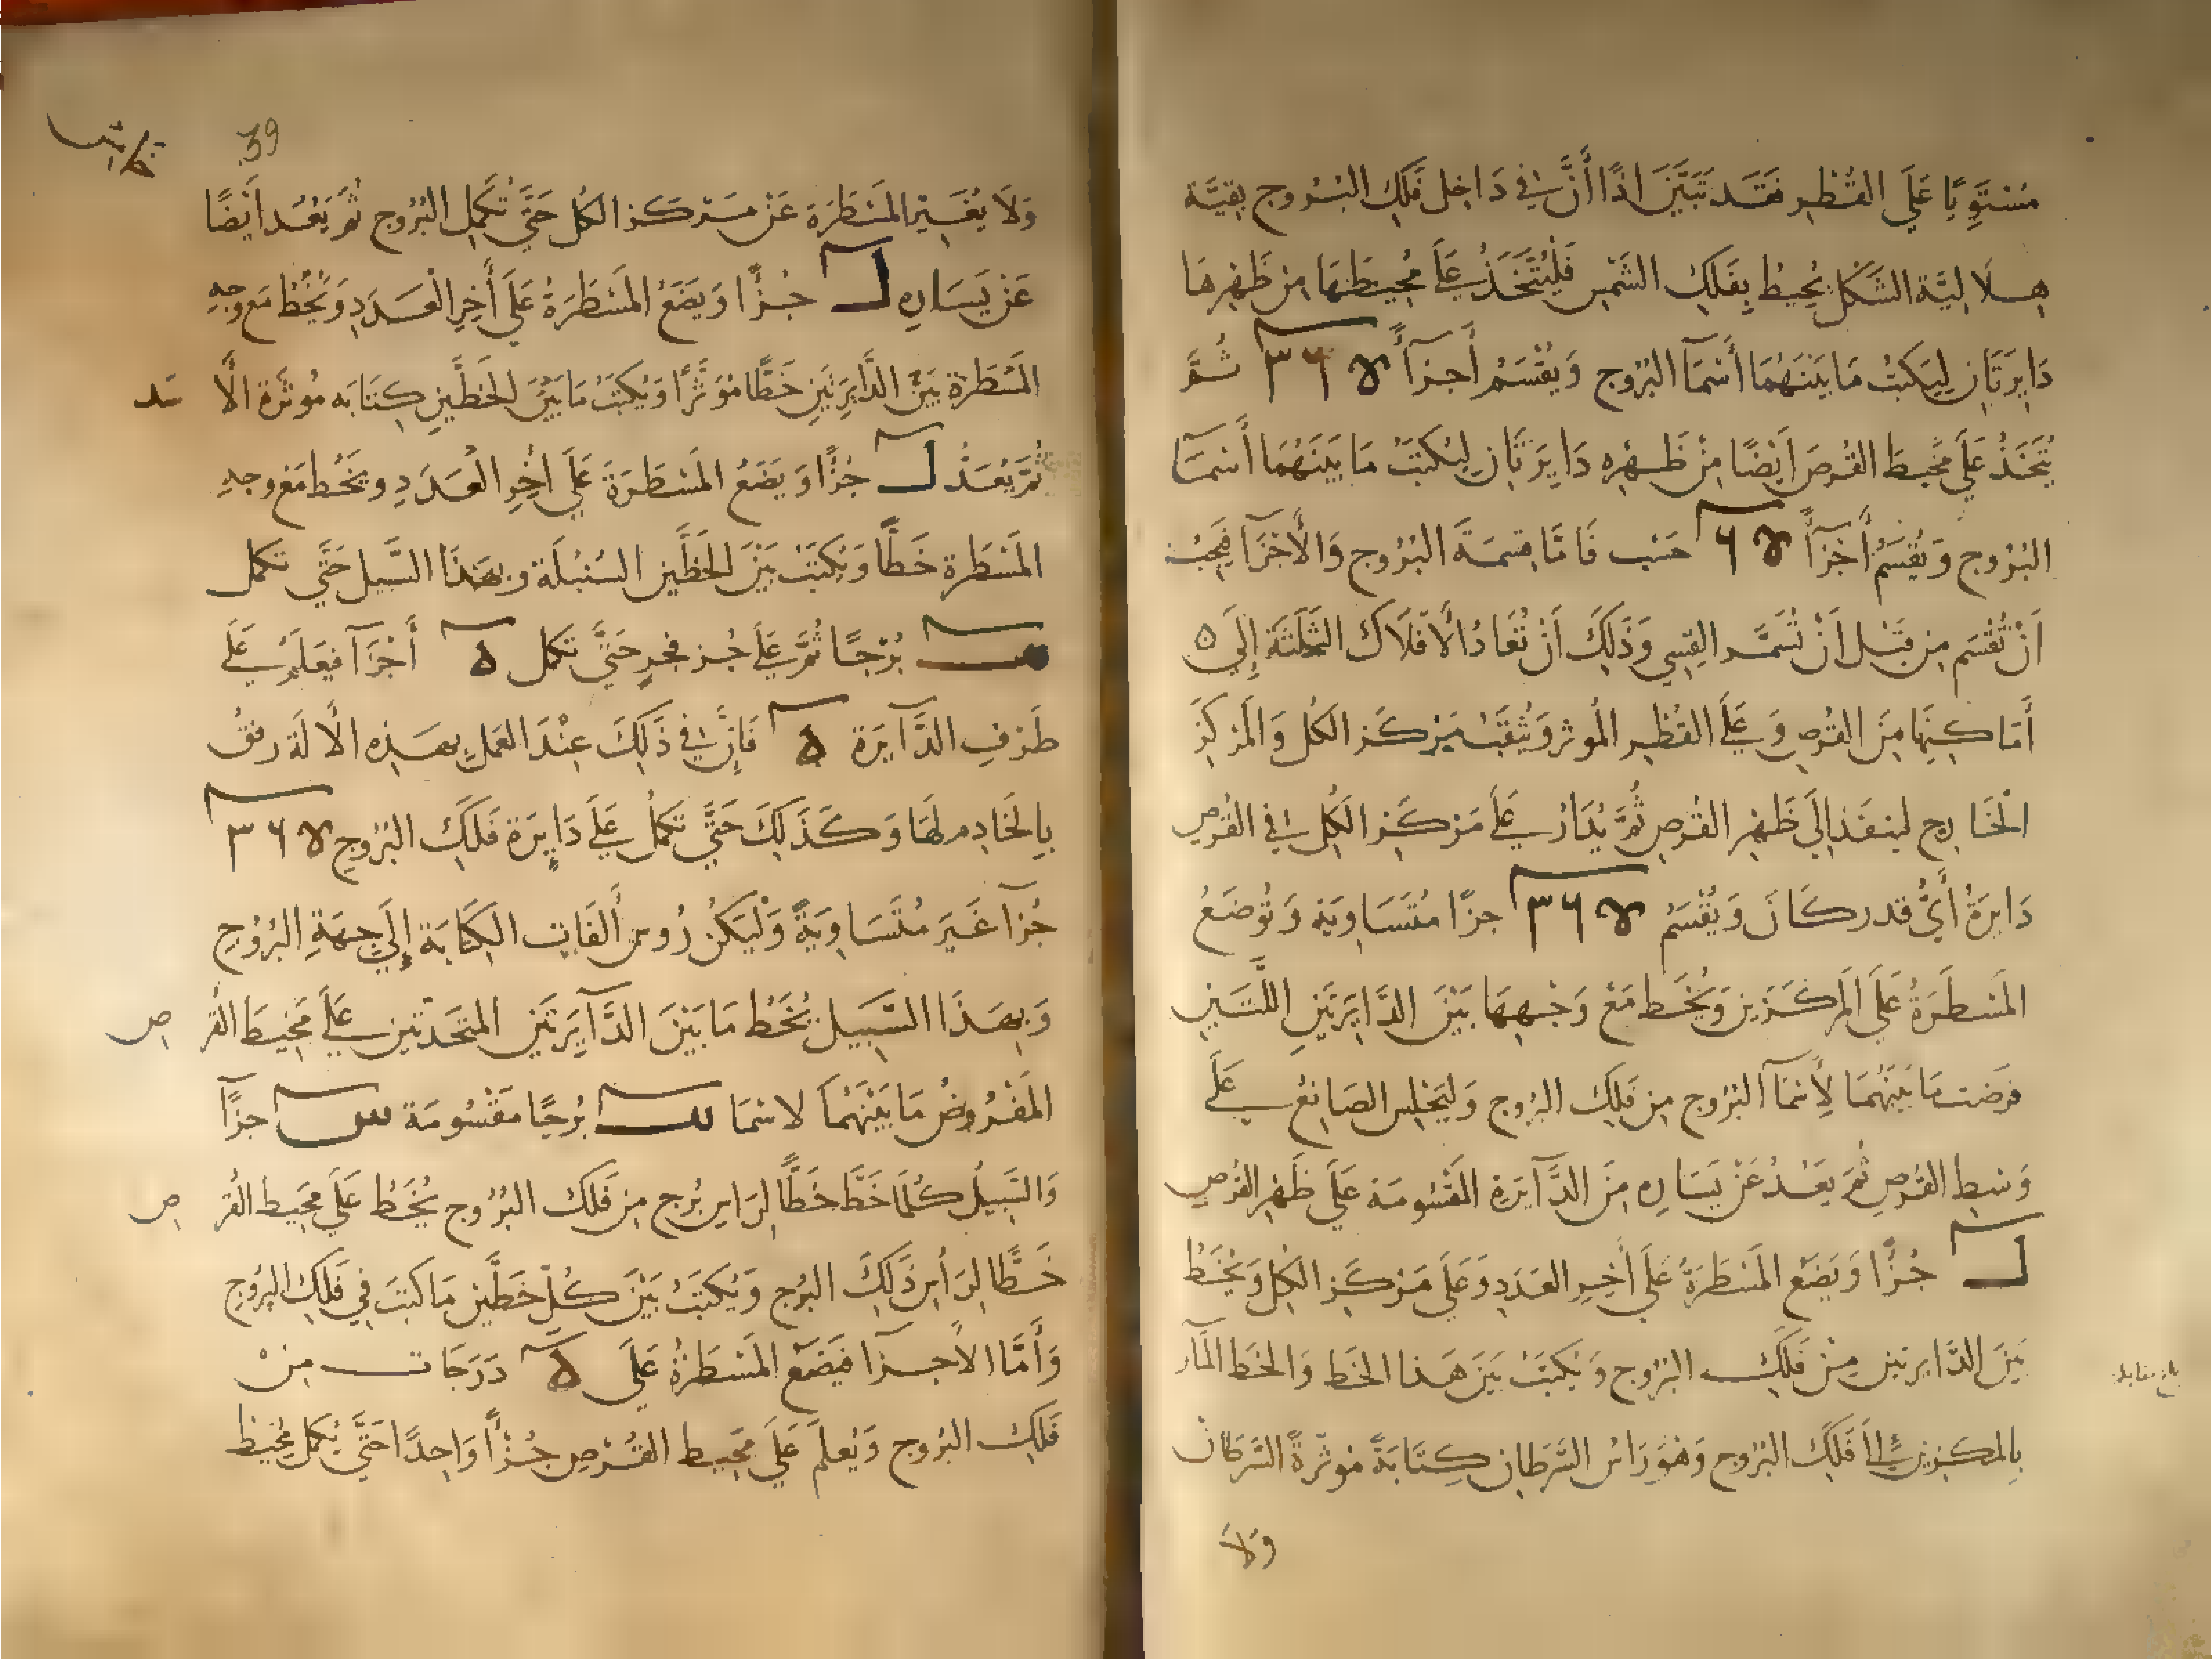 مُسْتَوِيًا عَلَى القُطْرِ فَقَد تَبَيَّنَ اذًا أَنَّ فِي دَاخِل فَلَكِ البُرُوج بِقِيَّة
هِلَالِيَّة الشَّكْل يُحِيطُ بِفَلَكِ الشَّمْس فَلْيُتَّخَذْ عَلَى مُحِيطِهَا مِن ظَهْرِهَا
دَايِرَتَان لِيَكتبُ مَا بَيْنَهُمَا أَسْمَآ البُرُوج وَيُقْسَمُ أَجزَآءً ٣٦٥ ثُمَّ
يُتَّخَذُ عَلَى مُحِيط القُرص ايْضًا مِنْ ظَهْرِه دَايِرَتَان لِيُكتبَ مَا بَيْنَهُمَا أَسْمَآ
البُرُوج وَيُقسَمُ أجزَآءً حَسْب فَامَّا قِسمَة البُرُوج وَالأَجْزَا فَيَجِبُ
اَنْ تُقْسَم مِن قَبْل اَنْ تُسَمَّر القِسِي وَذَلِكَ أَنْ تُعَادُ الأَفلَاك الثَّلَثَة إِلَى
أَمَاكِنِهَا مِنَ القُرصِ وَعَلَى القُطْرِ المُوثر وَيُثقَبُ مَركَز الكُل وَالمَركَزَ
الخَارِج لينفَذ إلَى ظَهْرِ القُرصِ ثُمَّ يُدَارُ عَلَى مَركَزِ الكُل فِي القُرصِ
دَايرَةُ أَيُّ قدر كَانَ وَيُقْسَمُ ٣٦٥ جزًا مُتَسَاوِيَة وَتُوضَعُ
المَسْطَرَةُ عَلَى المَركَزين وَيُخَط مَعْ وَجْهِهَا بَيْنَ الدَّايِرَتَيْنِ اللَّتَيْنِ
فرَضت مَا بَيْنَهُمَا لِأَسْمَآ البُرُوج مِن فَلَكِ البُرُوج وَليَجْلِس الصَانِعُ عَلَى
وَسَط القُرصِ ثُمَّ يَعُدُ عَنْ يَسَارِه مِنَ الدَّآيرَةِ المَقْسُومَة عَلَى ظَهْرِ القُرصِ
ل جُزًا وَيَضَع المَسْطَرَةُ عَلَى أخِرِ العَدَدِ وَعَلَى مَركَزِ الكُل وَيَخُطُ
بَيْنَ الدَّايرتين مِنْ فَلَكِ البُرُوج وَيَكتبَ بَيْنَ هَذا الخَط وَالخَط المَآر
بِالمركزين فَلَكَ البُرُوج وَهُوَ رَاسُ السَّرَطَان كِتَابَةً مُوثرَةً السَّرَطَانْ
وَلَا
39
وَلَا يُغَيِّر المَسْطَرَة عَنْ مَركَز الكُل حَتَّى تُكمل البُرُوج ثُمَّ يَعُد أَيضًا
عَن يَسَارِهِ ل جُزًا وَيَضَعُ المَسْطَرَةُ عَلَى أَخِرِ العَدَدِ وَيَخُطُ مَع وَجهِ
المَسْطَرَة بَيْنَ الدَّايِرَتَيْنِ خَطًّا مُوَثَّرًا وَيَكتبَ مَا بَيْنَ الخَطَّيْنِ كِتَابَه مُوثَرَة الأَسَد
ثُمَّ يَعُدُ ل جُزًا وَيَضَعُ المَسْطَرَةَ عَلَى أخِرِ العَدَدِ وَيَخُط مَع وجهِ
المَسْطَرَة خَطًّا وَيَكتبَ بَيْنَ الخَطَّيْن السُنبُلَة وبهَذَا السَّبيل حَتَّى تكمل
يب بُرْجًا ثُمَّ عَلَى جُز فجزٍ حَتَّى تَكمل ه أَجْزَآ فيَعَلِّم عَلَى
طَرَفِ الدَّآيرَة ه فَإِنَّ فِي ذَلِكَ عِنْدَ العَمَل بهَذِهِ الأَلَة رفقُ
بِالخَادِم لهَا وَكَذَلِكَ حَتَّى تَكمُل عَلَى دَايِرَة فَلَكِ البُرُوج ٣٦٥
جُزآ غَيرَ مُتَسَاوِيَةً وَلْيَكُن رُوس أَلِفَات الكِتَابَة إِلَى جِهَةِ البُرُوجِ
وَبِهَذَا السَّبِيل يُخَطُ مَا بَيْنَ الدَّآيِرَتَيْن المتخَذتين عَلَى مُحِيطَ القُرص
المَفْرُوضُ مَا بَيْنَهُمَا لاسْمَا يب بُرجًا مَقْسُومَة جزًآ
وَالسَّبِيلُ كُلَّمَا خَطَّ خَطًّا لرَاس بُرج مِن فَلَك البُرُوج يُخَطُ عَلَى مُحِيط القُرص
خَطًّا لرَأسِ ذَلِكَ البُرج وَيُكتبَ بَيْنَ كُلّ خَطَّيْن مَا كَتبَ فِي فَلَكِ البُرُوجِ
وَأَمَّا الأَجزَآ فيَضَع المَسْطَرَةُ عَلَى ه دَرَجَات مِنْ
فَلَكِ البُرُوج وَيُعلَّمَ عَلَى مُحيط القُرْصِ جُزًا وَاحِدًا حَتَّى تَكمُل مُحِيط